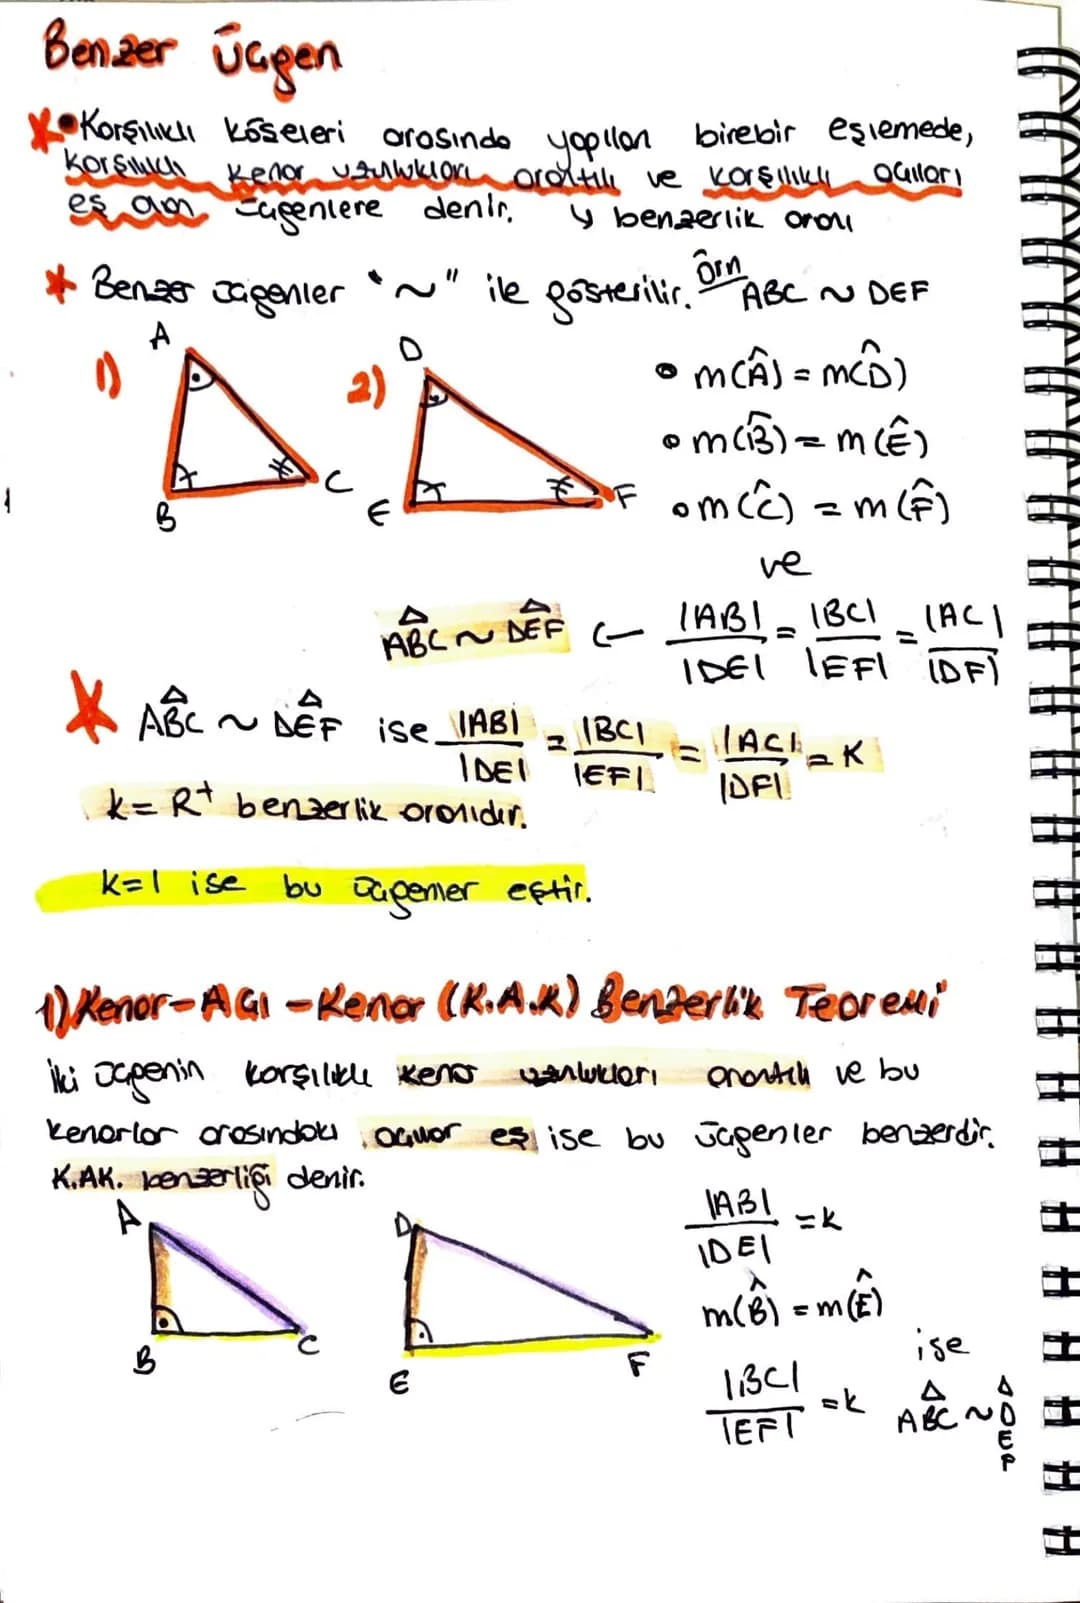 Benzer Üçgen
• Karşılıklı köşeleri arasında yapılan birebir eşlemede,
karşılıklı kenar uzunlukları orantılı ve karşılıklı açıları
eş olan üçgenlere denir. ↳ benzerlik oranı
* Benzer üçgenler "~" ile gösterilir. Örn ABC ~ DEF
1) A B C
2) D E F
• m(Â) = m(D̂)
• m(B̂) = m(Ê)
• m(Ĉ) = m(F̂)
ve
ABC ~ DEF ← |AB|/|DE| = |BC|/|EF| = |AC|/|DF|
* ABC ~ DEF ise |AB|/|DE| = |BC|/|EF| = |AC|/|DF| = K
k = R⁺ benzerlik oranıdır.
k=1 ise bu üçgenler eştir.
1) Kenar-Açı-Kenar (K.A.K) Benzerlik Teoremi
İki üçgenin karşılıklı kenar uzunlukları orantılı ve bu
kenarlar arasındaki açılar eş ise bu üçgenler benzerdir.
K.A.K. benzerliği denir.
A B C
D E F
|AB|/|DE| = k
m(B̂) = m(Ê)
ise
|BC|/|EF| = k ABC ~ DEF